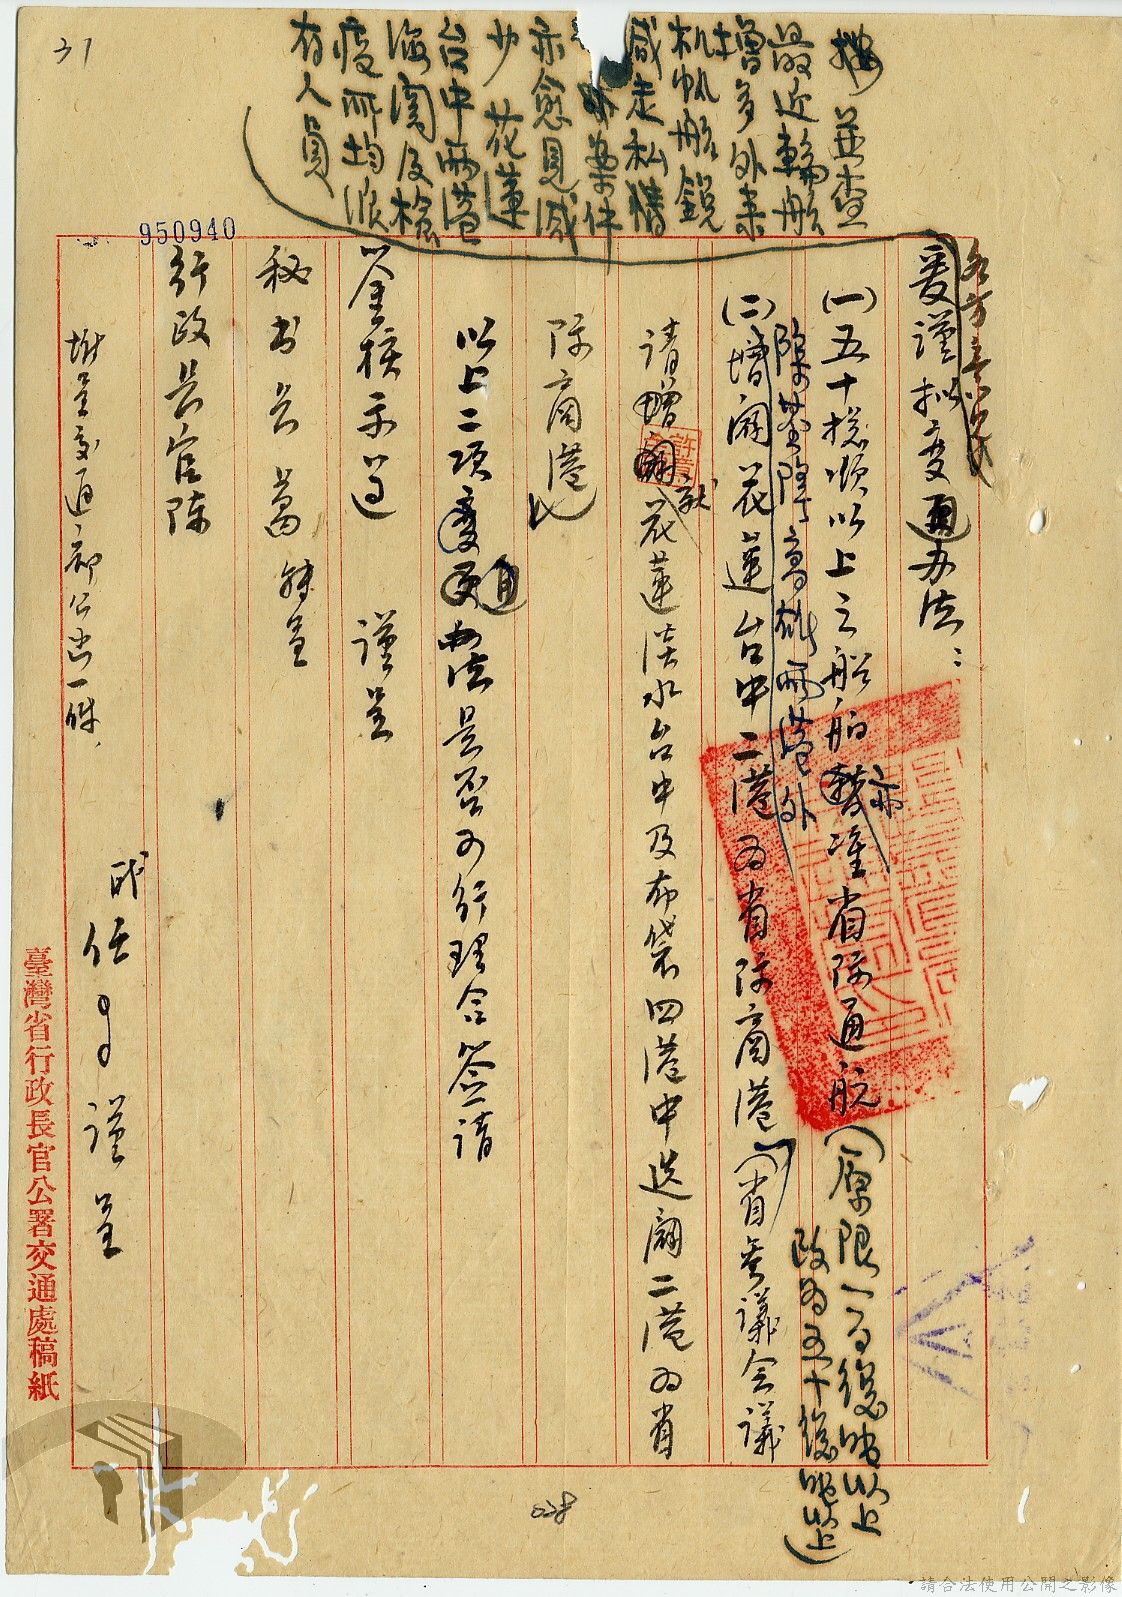 31
按並查
最近輪船
增多外來
機帆船銳
減走私情
案件
亦愈見減
少花蓮
台中兩港
海關及檢
疫所均派
有人員
950940
各方意見
爰謹擬變通办法：
(一)五十總噸以上之船舶亦暫准省際通航(原限一百總噸以上
改為五十總噸以上)
除基隆高雄兩港外
(二)增闢花蓮台中二港為省際商港(省參議會議
請增闢花蓮淡水台中及布袋四港中迭闢二港為省
際商港)
以上二項變通办法是否可行理合簽請
鉴核示遵 謹呈
秘書長葛 轉呈
行政長官陳
附呈交通部公函一件
職任 謹呈
臺灣省行政長官公署交通處稿紙
028
請合法使用公開之影像